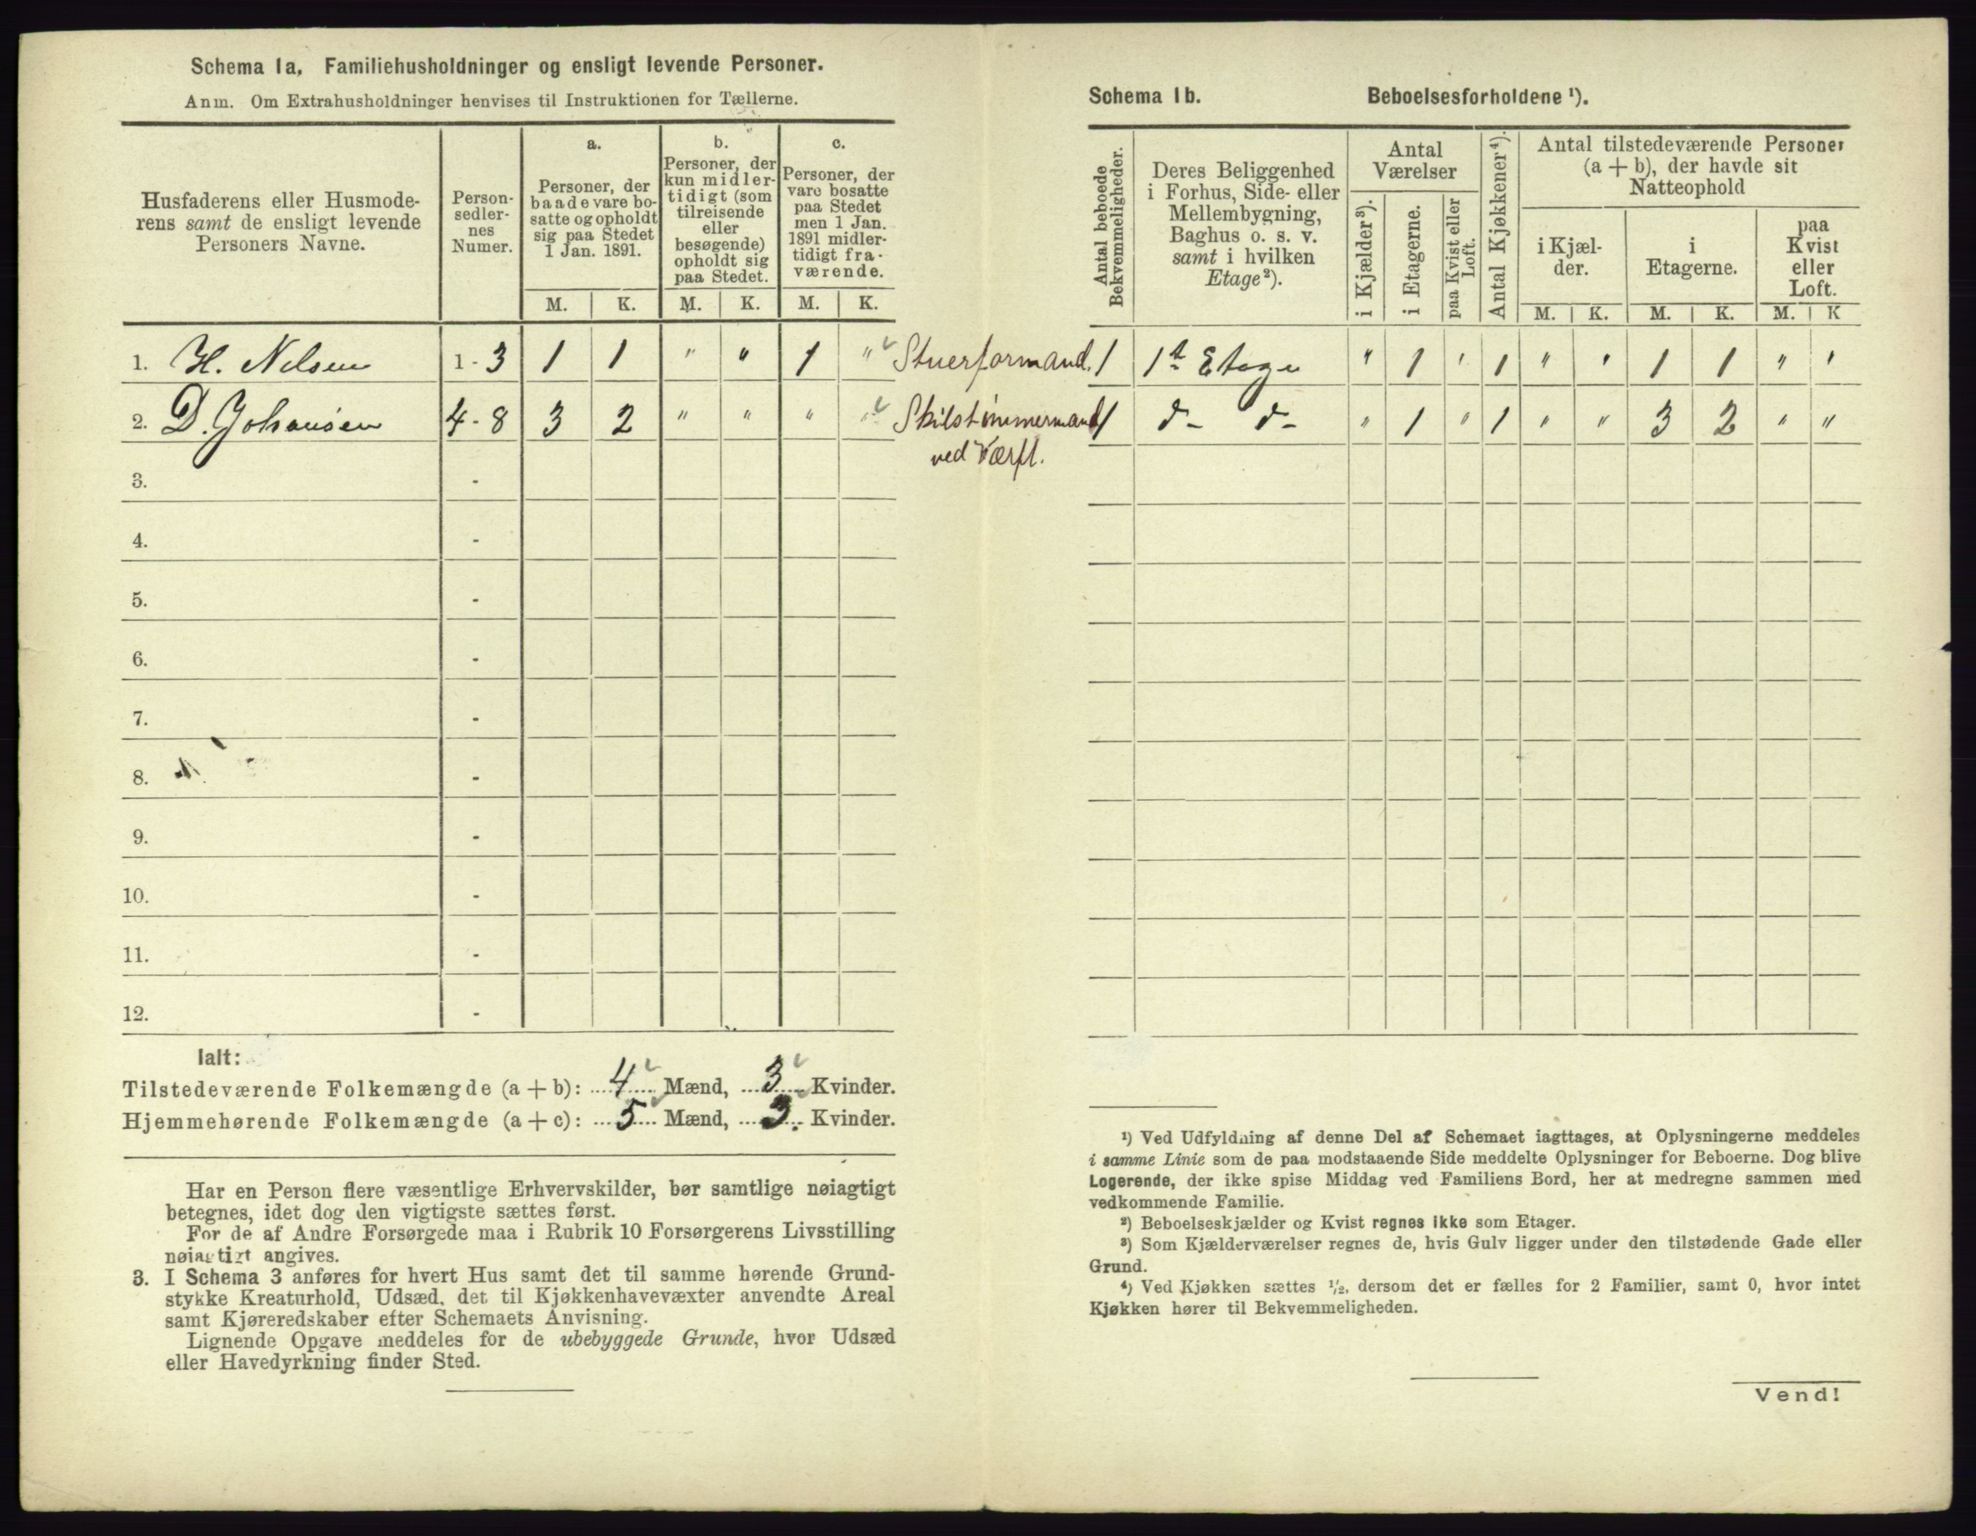 Schema 1a. Familiehusholdninger og ensligt levende Personer.
Anm. Om Extrahusholdninger henvises til Instruktionen for Tællerne.
Husfaderens eller Husmode-
rens samt de ensligt levende
Personers Navne.
Person-
sedler-
nes
Numer.
a.
Personer, der
baade vare bo-
satte og opholdt
sig paa Stedet
1 Jan. 1891.
b.
Personer, der
kun midler-
tidigt (som
tilreisende
eller
besøgende)
opholdt sig
paa Stedet.
c.
Personer, der
vare bosatte
paa Stedet
men 1 Jan.
1891 midler-
tidigt fra-
værende.
M. K. M. K. M. K.
1. H. Nilsen 1 - 3 1 1 " " 1 " Stuerformand.
2. D. Johansen 4 - 8 3 2 " " " " Skibstømmermand
ved Værft.
3. -
4. -
5. -
6. -
7. -
8. -
9. -
10. -
11. -
12. -
Ialt:
Tilstedeværende Folkemængde (a + b): 4 Mænd, 3 Kvinder.
Hjemmehørende Folkemængde (a + c): 5 Mænd, 3. Kvinder.
Har en Person flere væsentlige Erhvervskilder, bør samtlige nøiagtigt
betegnes, idet dog den vigtigste sættes først.
For de af Andre Forsørgede maa i Rubrik 10 Forsørgerens Livsstilling
nøiagtigt angives.
3. I Schema 3 anføres for hvert Hus samt det til samme hørende Grund-
stykke Kreaturhold, Udsæd, det til Kjøkkenhavevæxter anvendte Areal
samt Kjøreredskaber efter Schemaets Anvisning.
Lignende Opgave meddeles for de ubebyggede Grunde, hvor Udsæd
eller Havedyrkning finder Sted.
Schema 1b. Beboelsesforholdene ¹).
Antal beboede
Bekvemmeligheder.
Deres Beliggenhed
i Forhus, Side- eller
Mellembygning,
Baghus o. s. v.
samt i hvilken
Etage²).
Antal
Værelser
i Kjælder³).
i Etagerne.
paa Kvist eller
Loft.
Antal Kjøkkener⁴).
Antal tilstedeværende Personer
(a + b), der havde sit
Natteophold
i Kjæl-
der.
i
Etagerne.
paa
Kvist
eller
Loft.
M. K. M. K. M. K
1 1ste Etage " 1 " 1 " " 1 1 " "
1 d- d- " 1 " 1 " " 3 2 " "
¹) Ved Udfyldning af denne Del af Schemaet iagttages, at Oplysningerne meddeles
i samme Linie som de paa modstaaende Side meddelte Oplysninger for Beboerne. Dog blive
Logerende, der ikke spise Middag ved Familiens Bord, her at medregne sammen med
vedkommende Familie.
²) Beboelseskjælder og Kvist regnes ikke som Etager.
³) Som Kjælderværelser regnes de, hvis Gulv ligger under den tilstødende Gade eller
Grund.
⁴) Ved Kjøkken sættes ½, dersom det er fælles for 2 Familier, samt 0, hvor intet
Kjøkken hører til Bekvemmeligheden.
Vend!